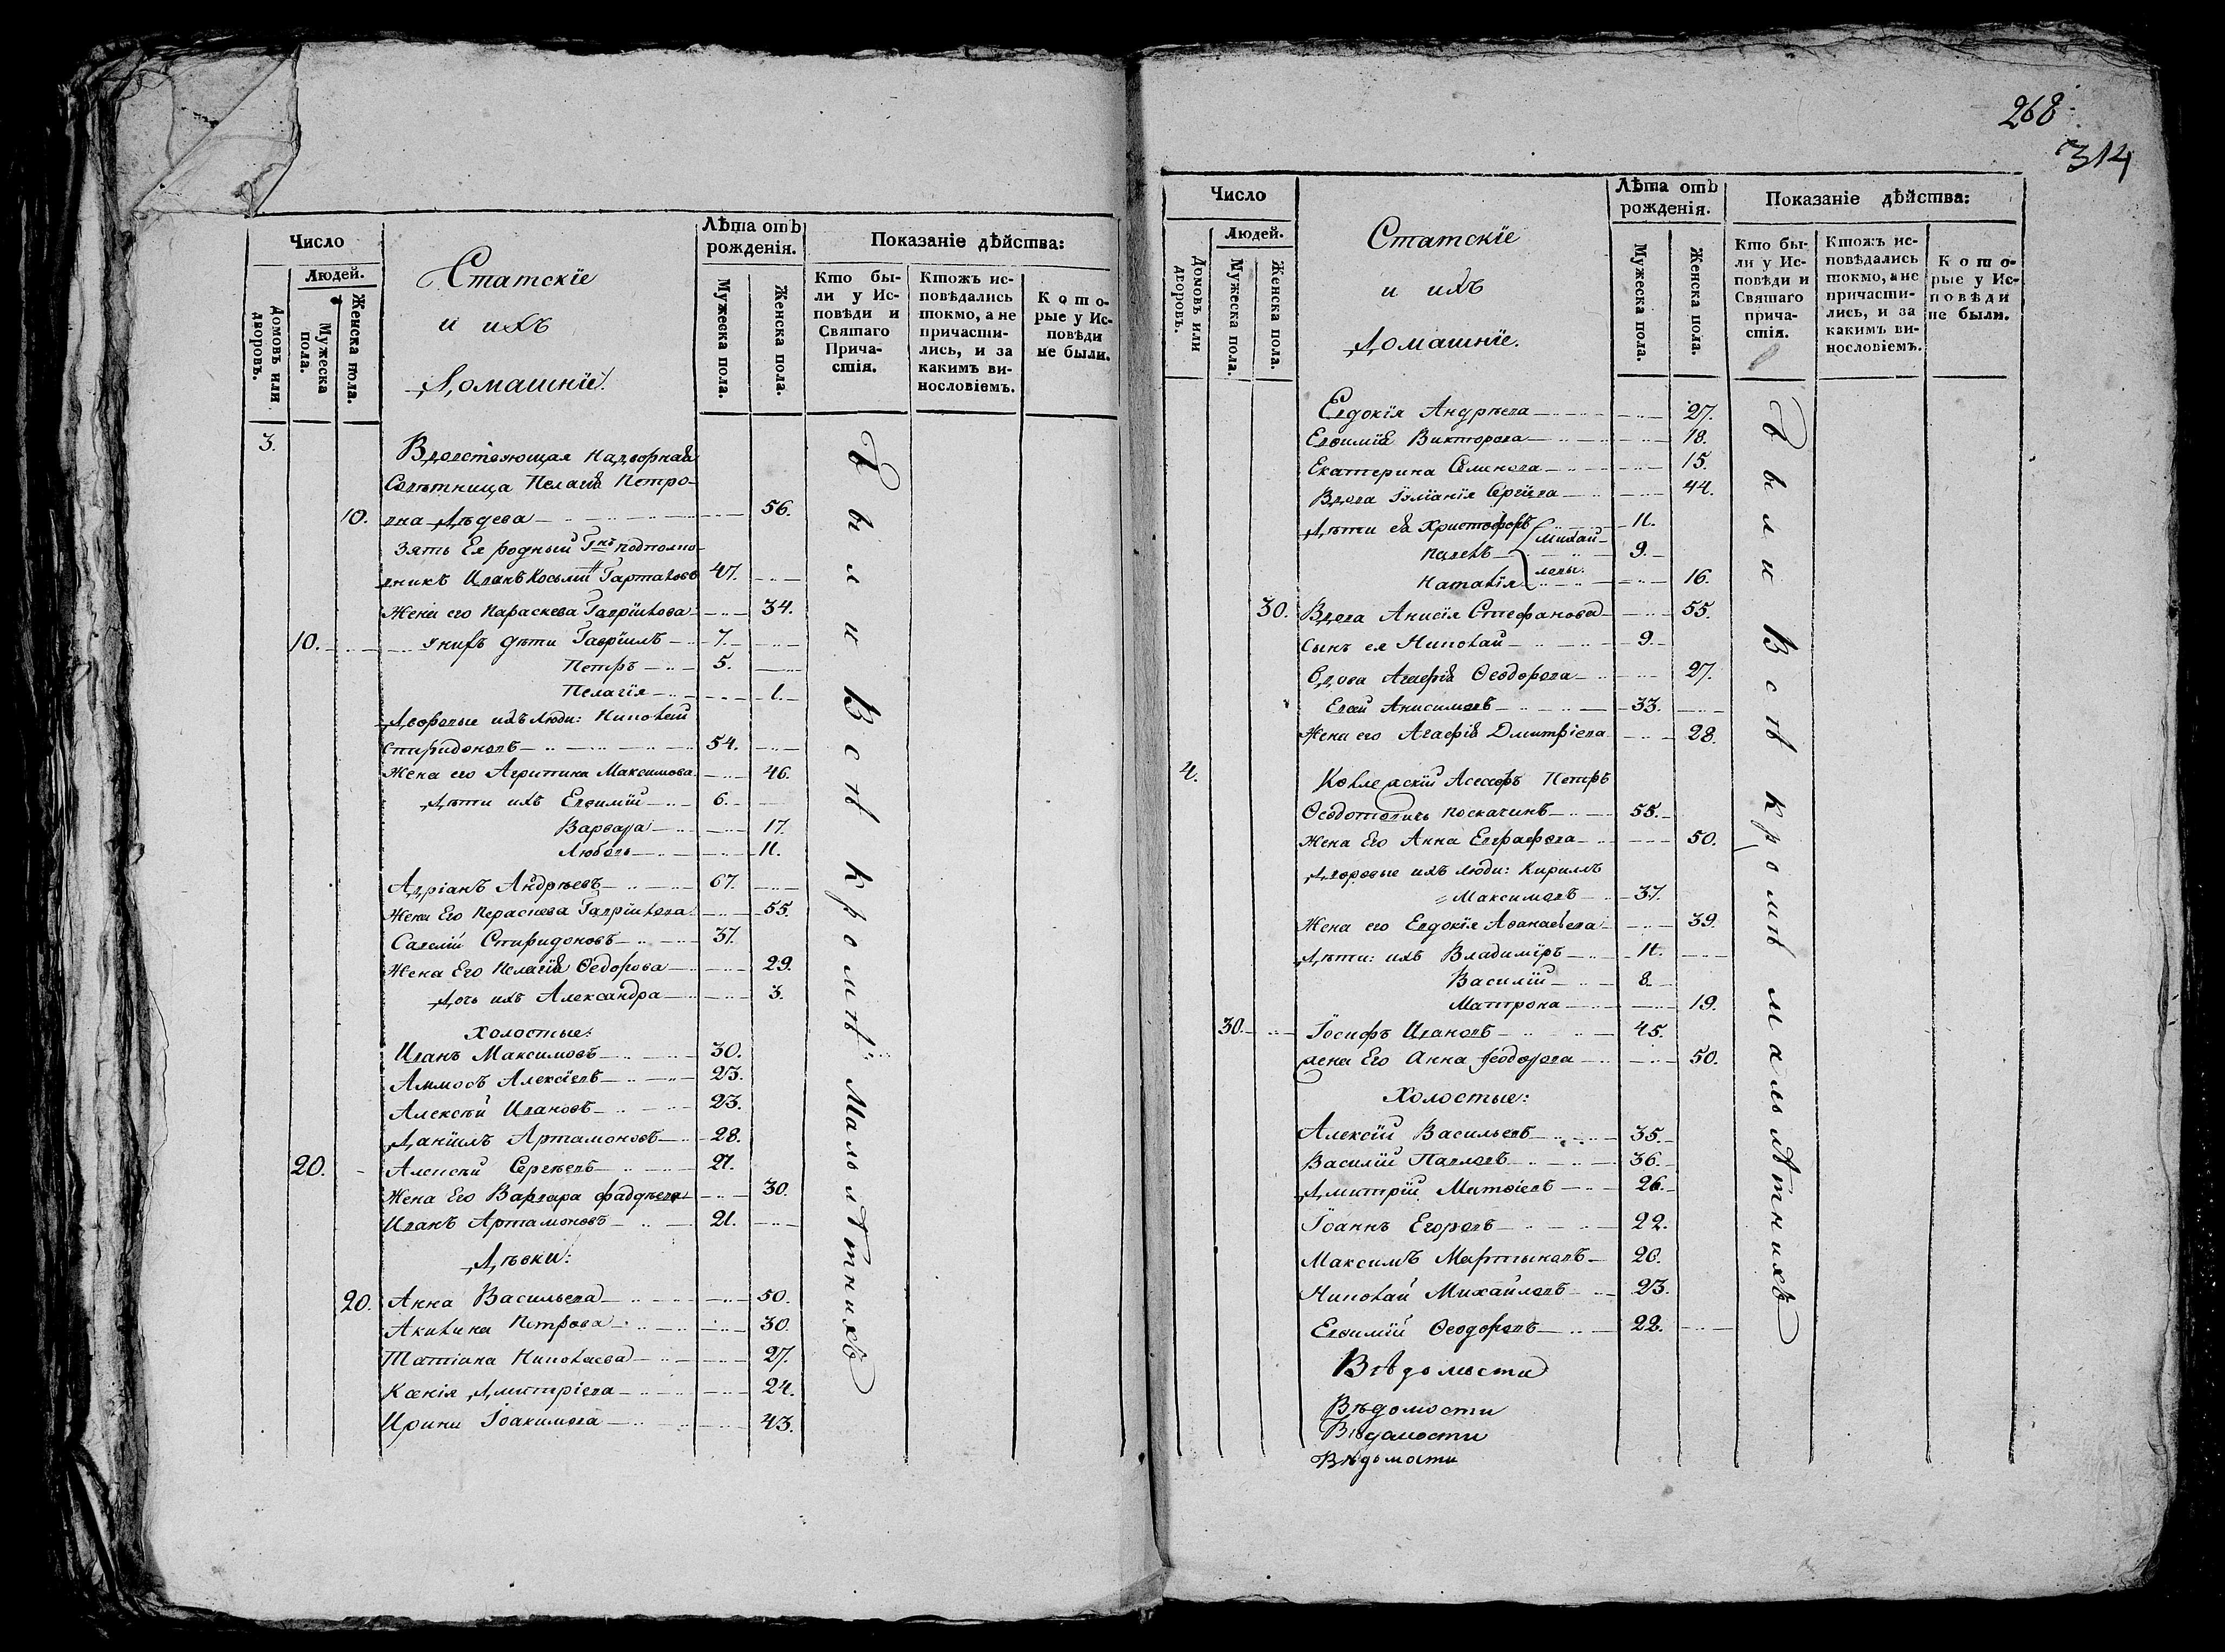 Число
Людей.
Домовъ или дворовъ.
Мужеска пола.
Женска пола.
Статскіе
и ихъ
Домашніе.
Лѣта отъ рожденія.
Мужеска пола.
Женска пола.
Показаніе дѣйства:
Кто были у Исповѣди и Святаго Причастія.
Ктожъ исповѣдались токмо, а не причастились, и за какимъ винословіемъ.
Которые у Исповѣди не были.
3. Вдовствующая Надворная
Совѣтница Пелагія Петро-
10. вна Дѣдева 56.
Зять Ея родный Гнъ подполко-
вникъ Иванъ Косьмич 47.
Жена его Параскева Гавріилова 34.
10. у нихъ дѣти Гавріилъ 7.
Петръ 5.
Пелагія 1.
Дворовые ихъ люди: Николай
Спиридоновъ 54.
Жена его Агрипина Максимова 46.
Дѣти ихъ Евѳимій 6.
Варвара 17.
Любовь 11.
Адріанъ Андреевъ 67.
Жена Его Параскева Гавріилова 55.
Савелій Спиридоновъ 37.
Жена Его Пелагія Ѳедорова 29.
Дочь ихъ Александра 3.
Холостые:
Иванъ Максимовъ 30.
Аммосъ Алексіевъ 23.
Алексѣй Ивановъ 23.
Даніилъ Артамоновъ 28.
20. Алексѣй Сергѣевъ 27.
Жена Его Варвара Фаддѣева 30.
Иванъ Артамоновъ 21.
Дѣвки:
20. Анна Васильева 50.
Акилина Петрова 30.
Татіана Николаева 27.
Ксенія Дмитріева 24.
Ирина Іоакимова 43.
Были Всѣ кромѣ Малолѣтнихъ
268
314
Число
Людей.
Домовъ или дворовъ.
Мужеска пола.
Женска пола.
Статскіе
и ихъ
Домашніе.
Лѣта отъ рожденія.
Мужеска пола.
Женска пола.
Показаніе дѣйства:
Кто были у Исповѣди и Святаго причастія.
Ктожъ исповѣдались токмо, а не причастились, и за какимъ винословіемъ.
Которые у Исповѣди не были.
Евдокія Андрѣева 27.
Евѳимія Викторова 18.
Екатерина Семинова 15.
Вдова Іуліанія Сергіева 44.
Дѣти ея Христофоръ 11.
Михай-
Павелъ 9.
ловы.
Наталія 16.
30. Вдова Анисія Стефанова 55.
Сынъ ея Николай 9.
Вдова Агафія Ѳеодорова 27.
Анисимовъ 33.
Жена его Агафія Дмитріева 28.
4. Коллежскій Асессоръ Петръ
Ѳеодотовичь Поскачинъ 55.
Жена Его Анна Евграфова 50.
Дворовые ихъ люди: Кириллъ
Максимовъ 37.
Жена его Евдокія Аѳанасьева 39.
Дѣти: ихъ Владиміръ 11.
Василій 8.
Матрона 19.
30. Іосифъ Ивановъ 45.
жена Его Анна Ѳеодорова 50.
Холостые:
Алексій Васильевъ 35.
Василій Павловъ 36.
Дмитрій Матѳіевъ 26.
Іоаннъ Егоровъ 22.
Максимъ Мартыновъ 20.
Николай Михайловъ 23.
Евѳимій Ѳеодоровъ 22.
Вѣдомости
Вѣдомости
Вѣдомости
Вѣдомости
Были Всѣ кромѣ малолѣтнихъ